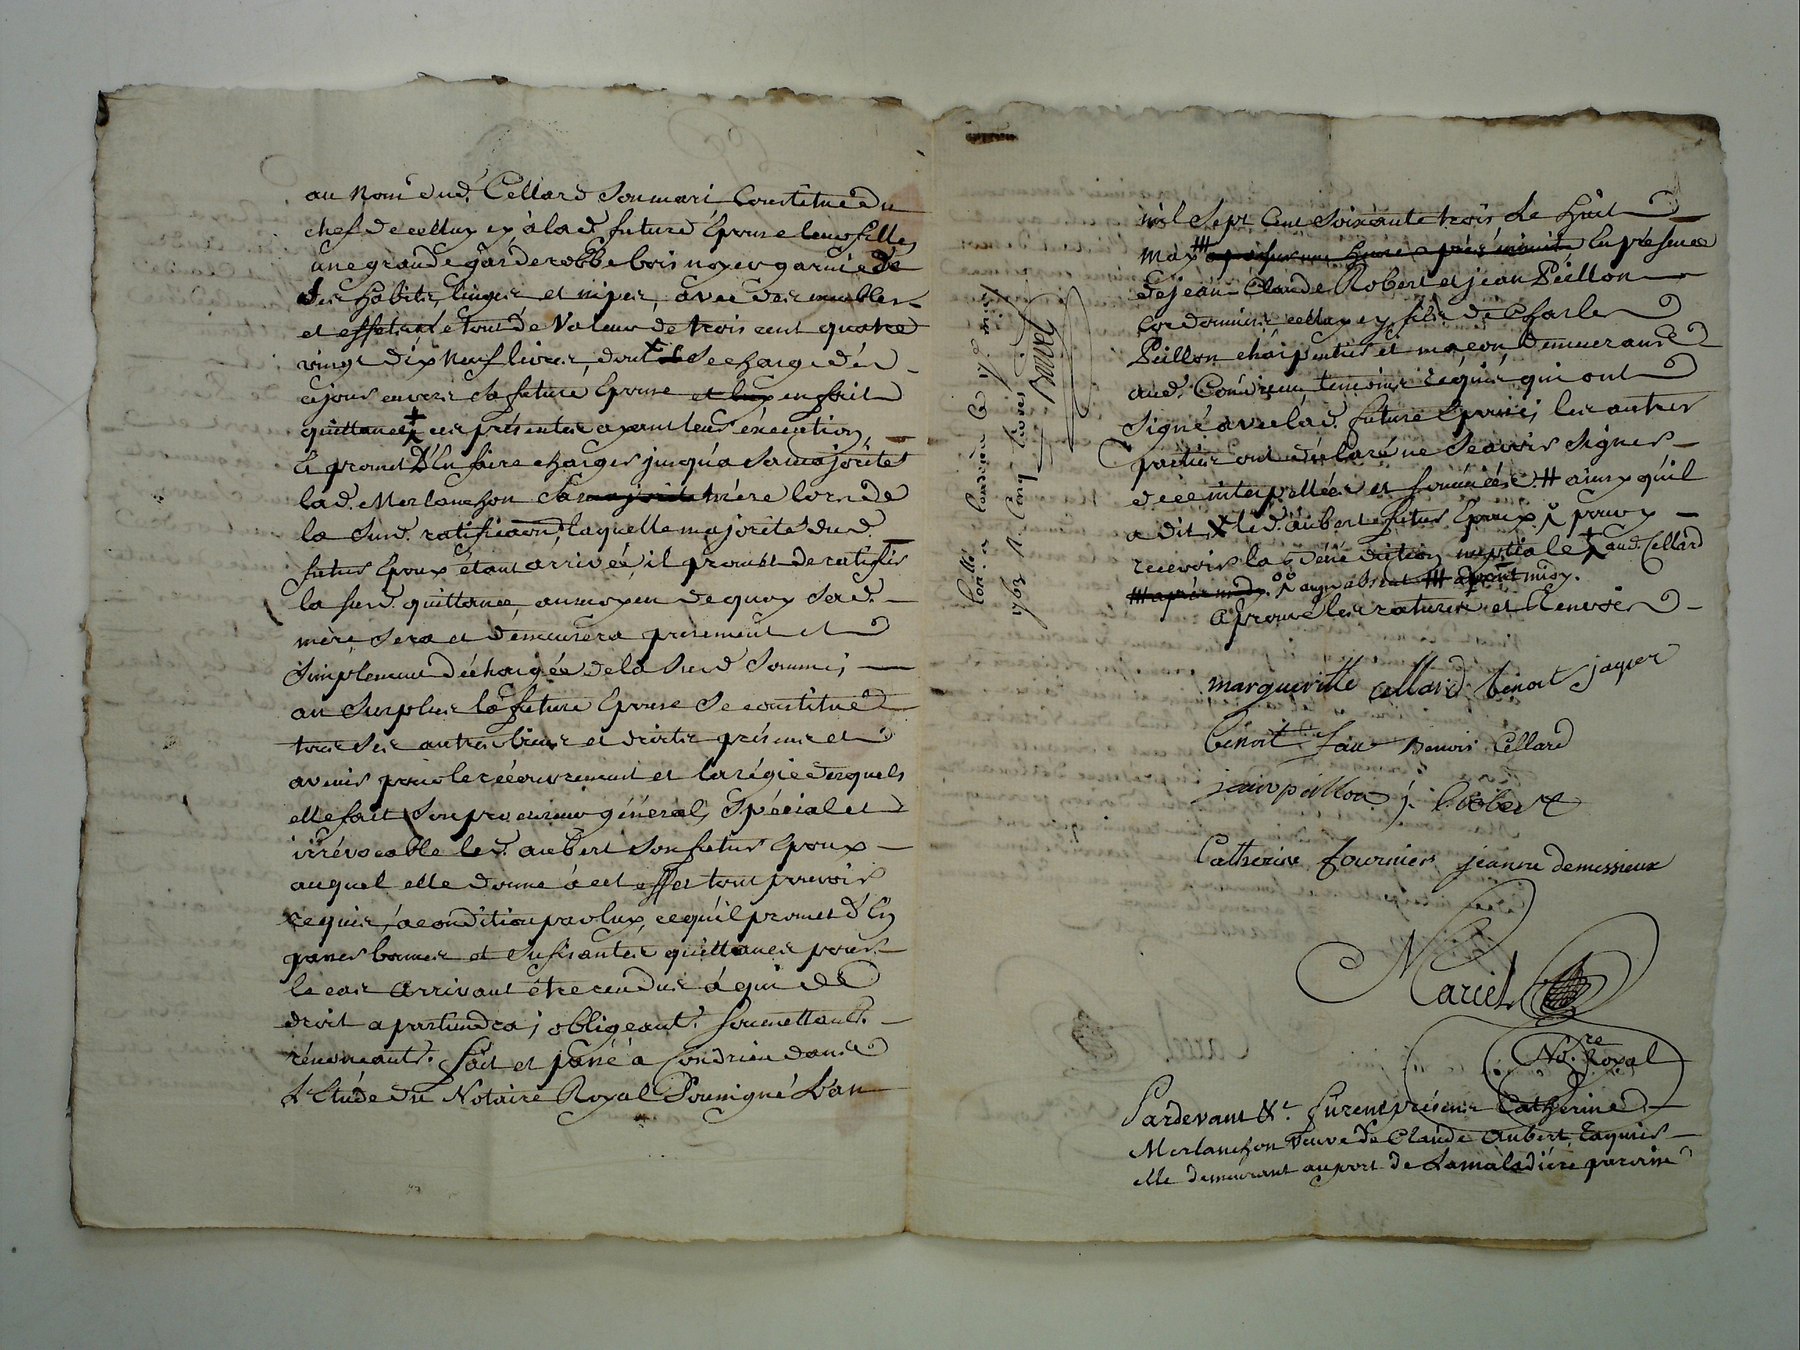 au Nom dud. Cellard Son mari Constitue du
chef de celluy cy à lad. future Epouse leur fille,
une grande garderobbe bois noyer garnie de
des habits, linges et nipes, avec des meubles
et effets le tout de Valeur de trois cent quatre
vingt dix Neuf livres, dont Se charge dès
ce jour envers Sa future Epouse et luy en fait
quittance ces présentes ayant leur éxécution,
Et promet d'En faire charger jusqu'a Sa majorité
lad. Merlanchon Sa majorité mère lors de
la Susd. ratification, laquelle majorité dud.
futur Epoux étant arrivée, il promet de ratifier
la susd. quittance, au moyen de quoy Sad.
mère Sera et demeurera purement et
Simplement déchargée de la Susd. Somme;
au Surplus la future Epouse Se constitue
tous Ses autres biens et droits présens et
avenir pour le recouvrement et la régie desquels
elle fait Son procureur général, Spécial et
irrévocable led. aubert Son futur Epoux
auquel elle donne à cet effet tout pouvoir
requis, a condition par luy, ce qu'il promet d'En
passer bonnes et Sufisantes quittances pour
le cas arrivant être rendus à qui de
droit apartiendra; obligeant. Soumettant.
rénonceant. fait et passé à Condrieu dans
L'Etude du Notaire Royal Soussigné L'an
mil Sept Cent Soixante trois Le huit
may En présence
de jean Claude Robert et jean Péillon
Cordonnier, celluy cy fils de Charle
Péillon charpentier et maçon, demeurants
aud. Condrieu, témoins requis qui ont
Signé avec lad. future Epouse, les autres
parties ont déclaré ne Scavoir Signer
de ce interpellées et sommées # ainsy qu'il
a dit X led. aubert futur Epoux pour y
recevoir la Bénédiction nuptiale aud. Cellard
# après midy. absent # avant midy.
aprouvé les ratures et Renvois
margueritte cellard benoit jaquer
benoit fau Benois Cellard
jean peillon j. C. Robert
Catherine fournier jeanne demissieux
Marcel
No.re Royal
Pardevant &c. furent présens Catherine
Merlanchon veuve de Claude Aubert, Laquier
elle demeurant au port de Lamaladiére paroisse
Con.llé a Condrieu le 17e may
1763 R. Cinq livres